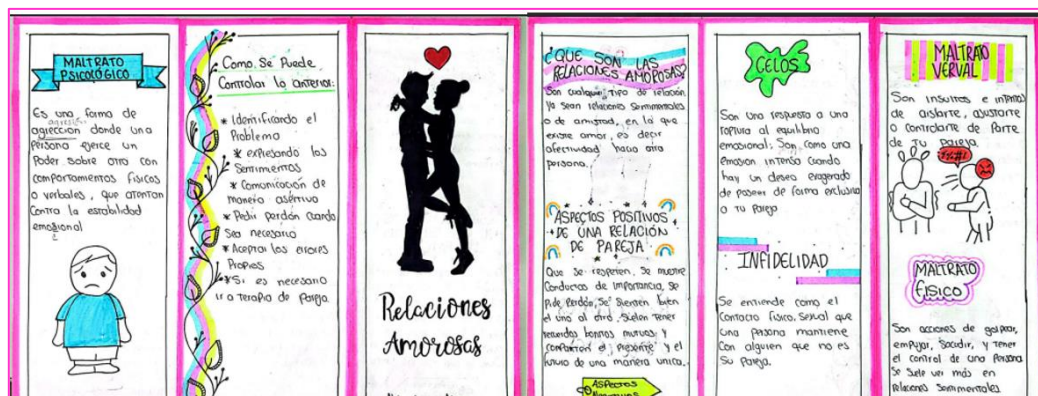 MALTRATO
PSICOLÓGICO
Es una forma de
agrección donde una
Persona ejerce un
Poder sobre otro con
comportamientos físicos
o verbales, que atentan
Contra la estabilidad
emosional
Como Se Puede
Controlar lo anterior:
* Identificando el
Problema
* expresando los
Sentimientos
* Comunicación de
manera asertiva
* Pedir perdón cuando
Sea necesario
* Aceptar los errores
Propios
* Si es necesario
ir a terapia de Pareja.
Relaciones
Amorosas
¿QUE SON LAS
RELACIONES AMOROSAS?
Son cualquier tipo de relación
Ya sean relaciones Sentimentales
o de amistad, en la que
existe amor, es decir
afectividad hacia otra
persona.
ASPECTOS POSITIVOS
DE UNA RELACIÓN
DE PAREJA
Que se respeten, Se muestre
Conductas de Importancia, Se
Pide Perdón, Se Sienten bien
el uno al otro, Suelen tener
recuerdos bonitos mutuos, y
comparten el presente y el
futuro de una manera unica.
ASPECTOS
CELOS
Son una respuesta a una
roptura al equilibrio
emosional. Son como una
emosion intensa cuando
hay un deseo exagerado
de poseer de forma exclusiva
a tu Pareja
INFIDELIDAD
Se entiende como el
Contacto Fisico, Sexual que
una Persona mantiene
Con alguien que no es
Su Pareja.
MALTRATO
VERVAL
Son insultos e intentos
de aislarte, asustarte
o controlarte de Parte
de Tu Pareja.
MALTRATO
FISICO
Son acciones de golpear,
empujar, Sacudir, y tener
el control de una Persona
Se Suele ver más en
relaciones Sentimentales